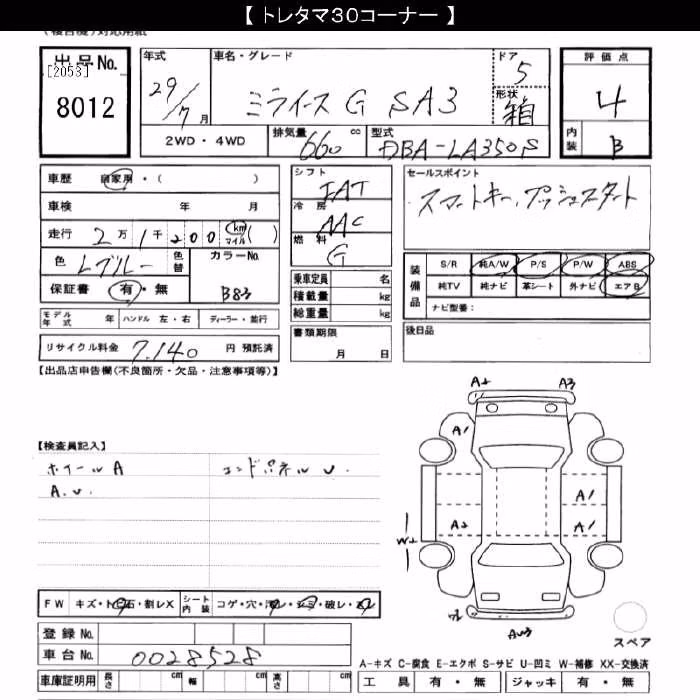 【 トレタマ30コーナー 】
出品No.
[2053]
8012
年式
29/7月
車名・グレード
ミライース G SA3
ドア
5
形状
箱
2WD・4WD
排気量
660 cc
型式
DBA-LA350S
評価点
4
内装
B
車歴 自家用・( )
車検 年 月
走行 2万1千200 km マイル ( )
色 Lブルー 色替
カラーNo.
B83
保証書 有・無
シフト
FAT
冷房
AAC
燃料
G
乗車定員 名
積載量 kg
総重量 kg
セールスポイント
スマートキー、プッシュスタート
装備品
S/R 純A/W P/S P/W ABS
純TV 純ナビ 革シート 外ナビ エアB
ナビ型番:
モデル年式 年 ハンドル 左・右 ディーラー・並行
リサイクル料金 7,140 円 預託済
書類期限
月 日
後日品
【出品店申告欄(不良箇所・欠品・注意事項等)】
A2 A3
A1
【検査員記入】
ホイールA エンドパネルU.
A.U.
A1
A2 A1
W2
AU3
スペア
FW キズ・トビ石・割レX シート内装 コゲ・穴・汚レ・シミ・破レ・スレ
登録No.
車台No. 0028528
車庫証明用 長さ cm 幅 cm 高さ cm
A-キズ C-腐食 E-エクボ S-サビ U-凹ミ W-補修 XX-交換済
工具 有・無 ジャッキ 有・無